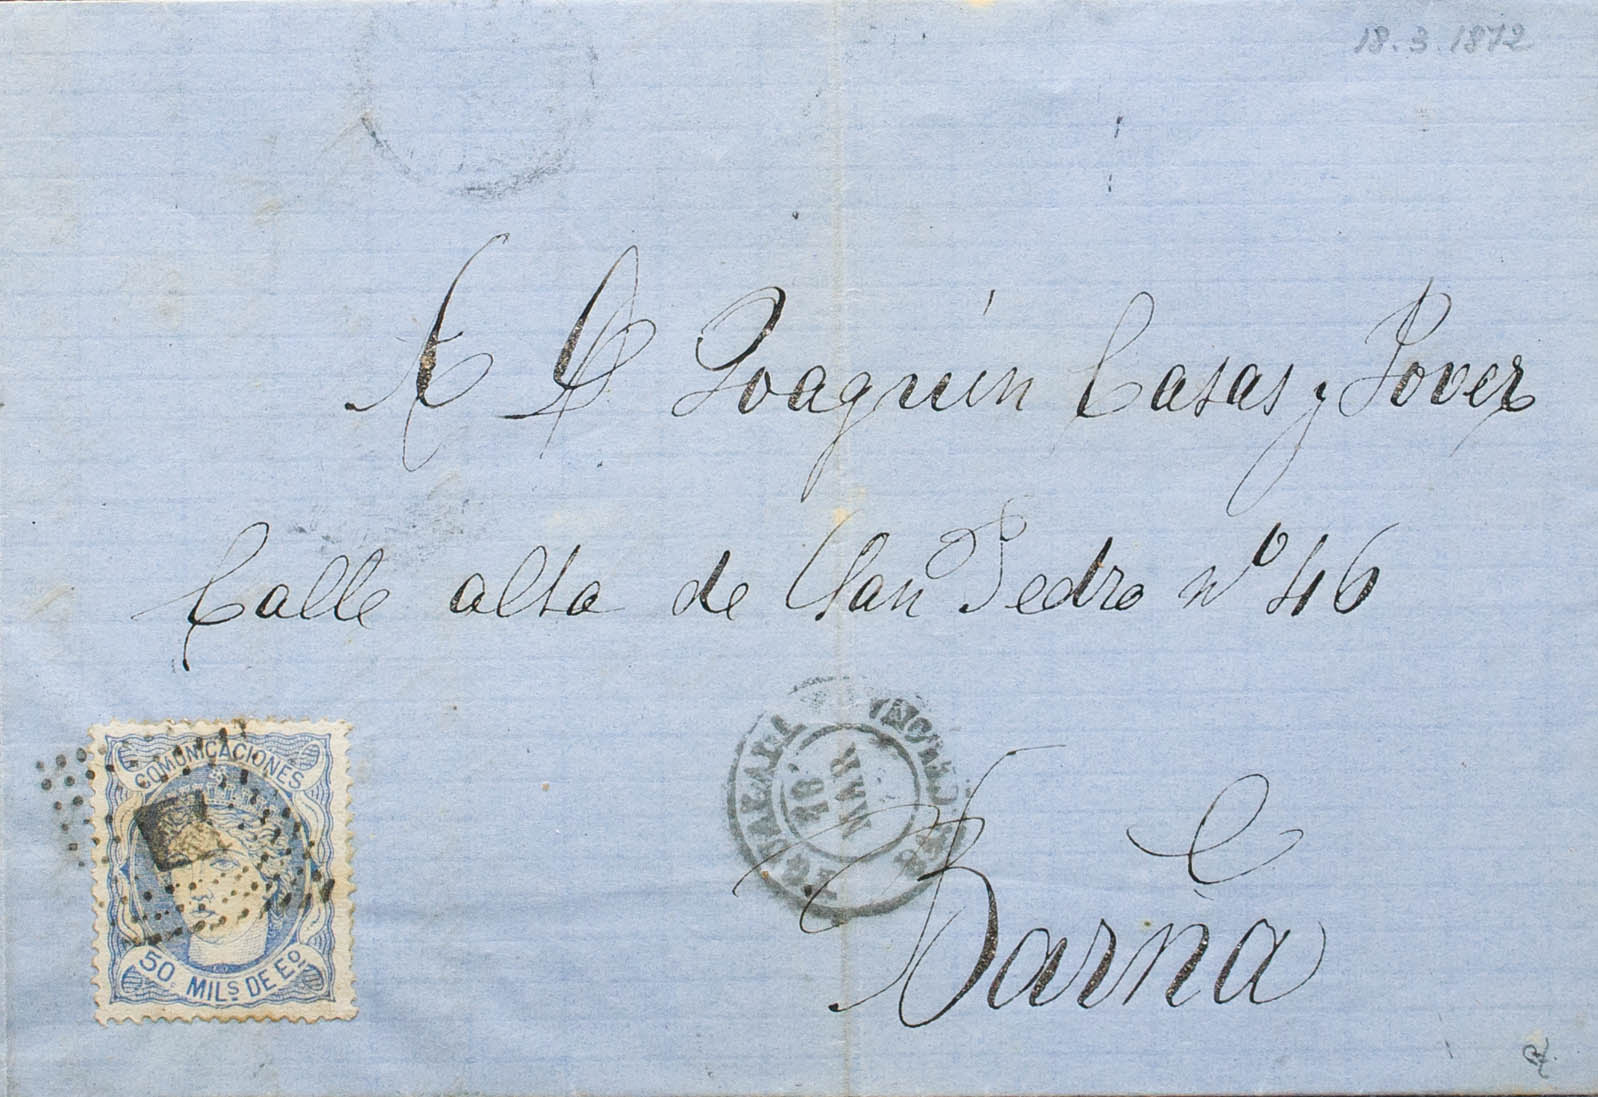 18.3.1872
A D Joaquín Casas y Jover
Calle alta de San Pedro nº 46
IGUALADA
BARCELONA
18
MAR
Barña
COMUNICACIONES
50 MILS DE EO.